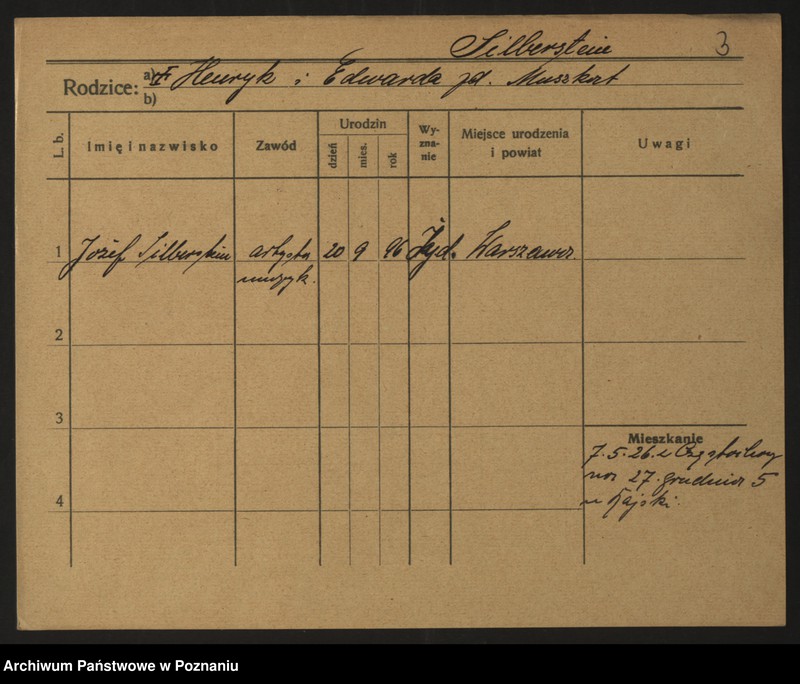 Silberstein 3
Rodzice: a) Henryk i Edwarda zd. Muszkat
b)
L. b. Imię i nazwisko Zawód Urodzin dzień mies. rok Wy-zna-nie Miejsce urodzenia i powiat Uwagi
1 Józef Silberstein artysta 20 9 96 Żyd. Warszawa
muzyk.
2
3
Mieszkanie
7.5.26. z Częstochowy
na 27. grudnia 5
4
u Kajski.
Archiwum Państwowe w Poznaniu